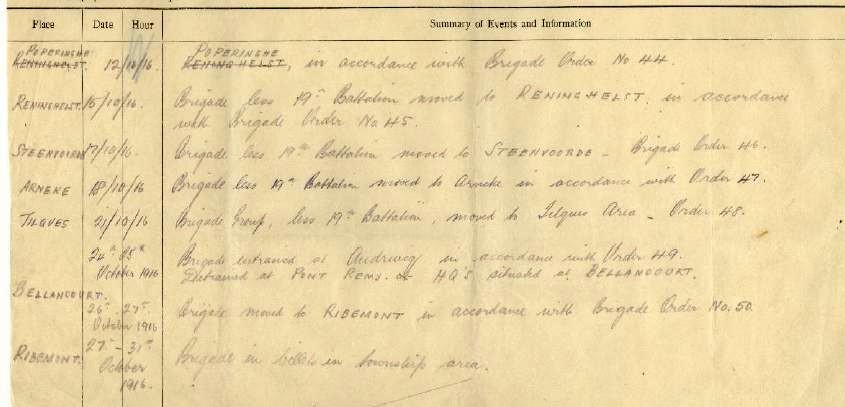 Place Date Hour Summary of Events and Information
POPERINGHE POPERINGHE
RENINGHELST. 12/10/16. RENINGHELST, in accordance with Brigade Order No 44.
RENINGHELST. 15/10/16. Brigade less 19th Battalion moved to RENINGHELST. in accordance
with Brigade Order No. 45.
STEENVOORDE 17/10/16. Brigade less 19th Battalion moved to STEENVOORDE - Brigade Order 46.
ARNEKE 18/10/16 Brigade less 19th Battalion moved to Arneke in accordance with Order 47.
TILQUES 21/10/16 Brigade Group, less 19th Battalion, moved to Tilques Area - Order 48.
24th 25th Brigade entrained at Audruicq in accordance with Order 49.
October 1916 Detrained at PONT REMY. HQ'S situated at BELLANCOURT.
BELLANCOURT.
26th 27th Brigade moved to RIBEMONT in accordance with Brigade Order No. 50.
October 1916
RIBEMONT. 27th - 31st Brigade in billets in township area.
October
1916.